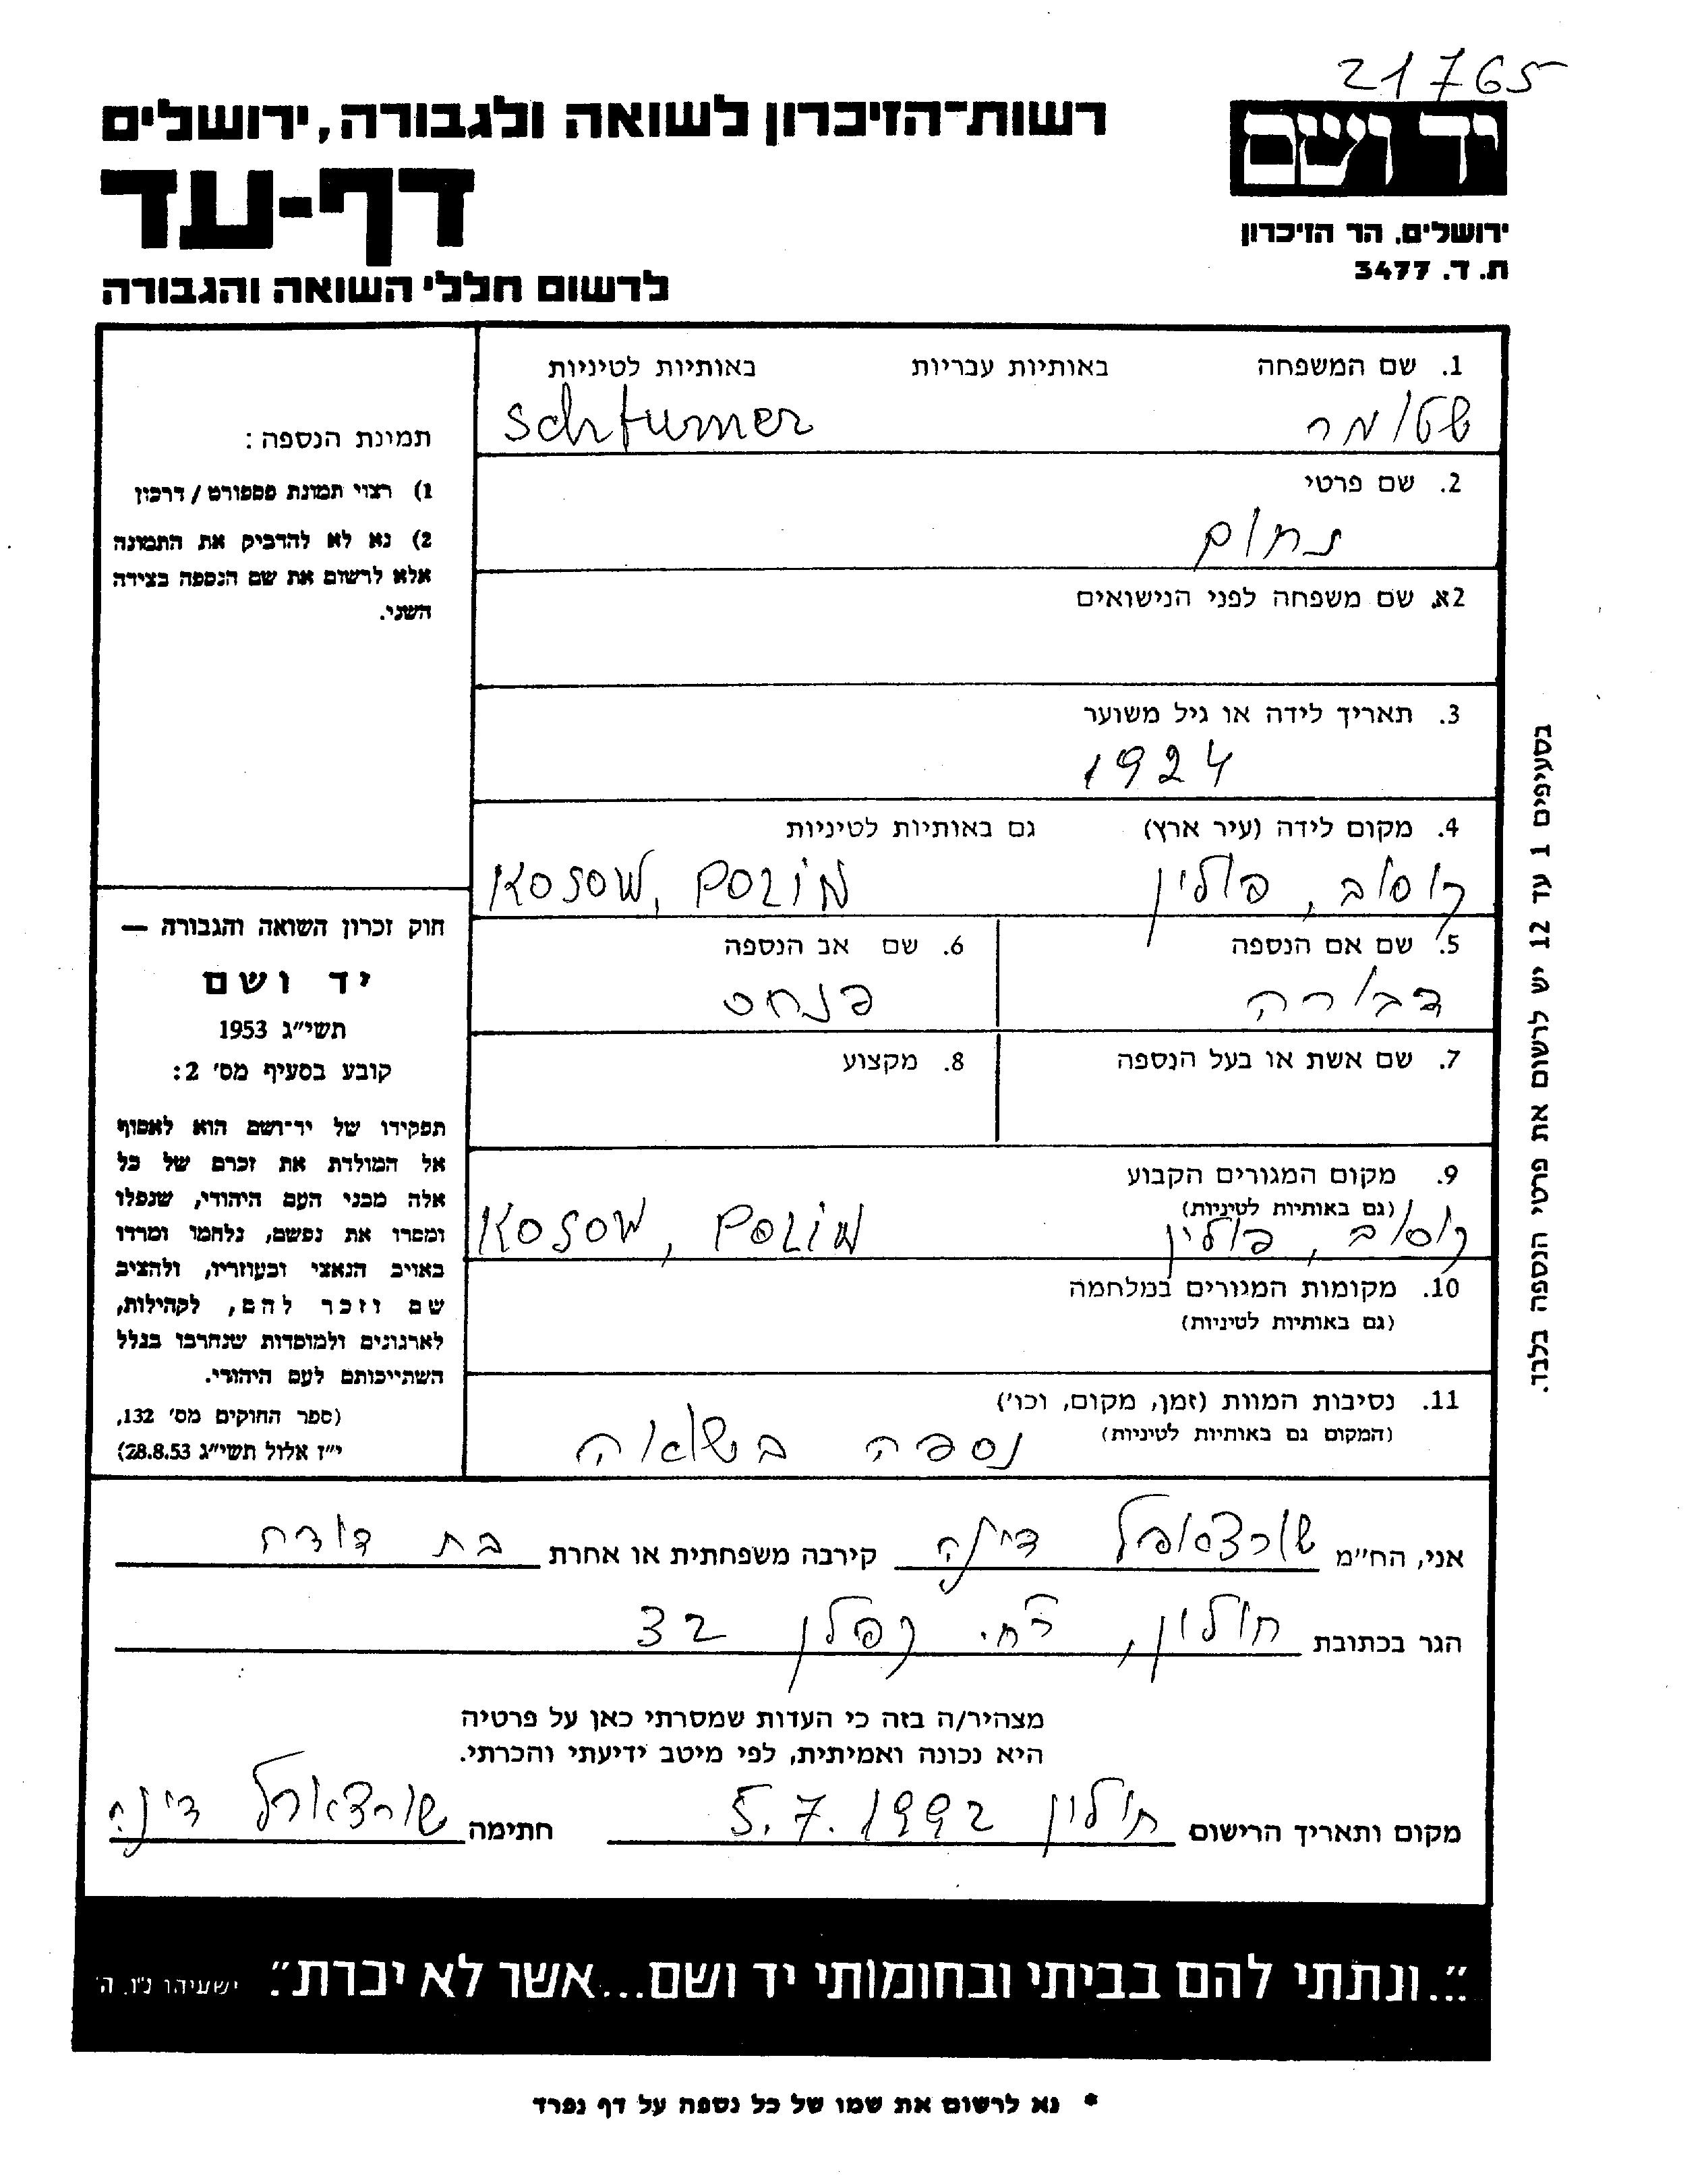 21765
יד ושם
ירושלים, הר הזיכרון
ת. ד. 3477
רשות-הזיכרון לשואה ולגבורה, ירושלים
דף-עד
לרשום חללי השואה והגבורה
1. שם המשפחה באותיות עבריות באותיות לטיניות
שטומר Schtumer
2. שם פרטי
נחום
2א. שם משפחה לפני הנישואים
3. תאריך לידה או גיל משוער
1924
4. מקום לידה (עיר ארץ) גם באותיות לטיניות
קוסוב, פולין KOSOW, POLIN
5. שם אם הנספה 6. שם אב הנספה
דבורה פנחס
7. שם אשת או בעל הנספה 8. מקצוע
9. מקום המגורים הקבוע
(גם באותיות לטיניות)
קוסוב, פולין KOSOW, POLIN
10. מקומות המגורים במלחמה
(גם באותיות לטיניות)
11. נסיבות המוות (זמן, מקום, וכו')
(המקום גם באותיות לטיניות)
נספה בשואה
תמונת הנספה:
1) רצוי תמונת פספורט / דרכון
2) נא לא להדביק את התמונה
אלא לרשום את שם הנספה בצידה
השני.
חוק זכרון השואה והגבורה —
יד ושם
תשי"ג 1953
קובע בסעיף מס' 2:
תפקידו של יד-ושם הוא לאסוף
אל המולדת את זכרם של כל
אלה מבני העם היהודי, שנפלו
ומסרו את נפשם, נלחמו ומרדו
באויב הנאצי ובעוזריו, ולהציב
שם וזכר להם, לקהילות,
לארגונים ולמוסדות שנחרבו בגלל
השתייכותם לעם היהודי.
(ספר החוקים מס' 132,
י"ז אלול תשי"ג 28.8.53)
בסעיפים 1 עד 12 יש לרשום את פרטי הנספה בלבד.
אני, הח"מ דינה קירבה משפחתית או אחרת בת דודה
הגר בכתובת חולון, רח. קפלן 32
מצהיר/ה בזה כי העדות שמסרתי כאן על פרטיה
היא נכונה ואמיתית, לפי מיטב ידיעתי והכרתי.
מקום ותאריך הרישום חולון 5.7.1992 חתימה דינה
"...ונתתי להם בביתי ובחומותי יד ושם...אשר לא יכרת". ישעיהו נ"ו, ה'
* נא לרשום את שמו של כל נספה על דף נפרד